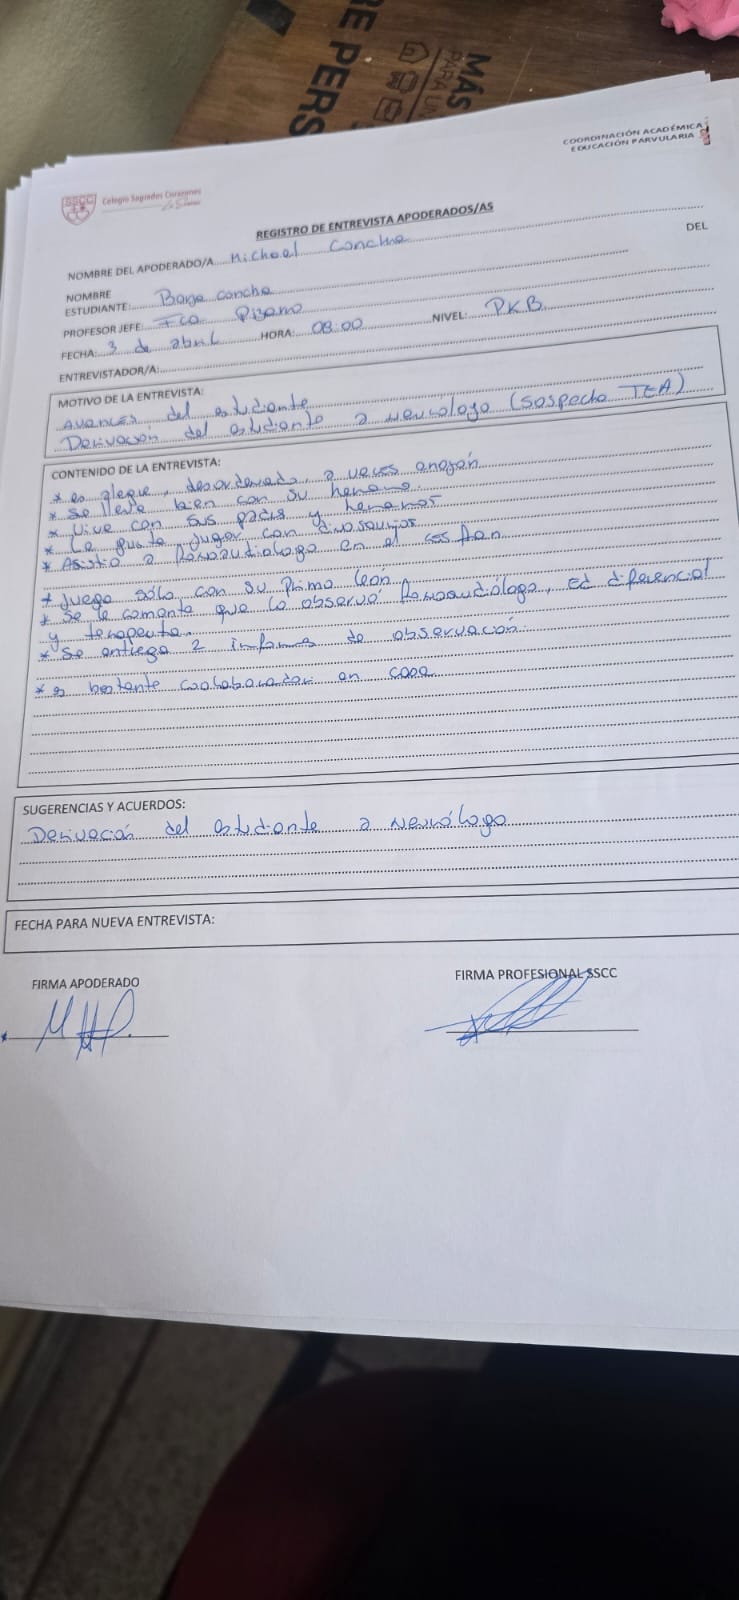 RE PERS
MÁS
PARA UN
COORDINACIÓN ACADÉMICA
EDUCACIÓN PARVULARIA
SSCC
Colegio Sagrados Corazones
REGISTRO DE ENTREVISTA APODERADOS/AS
NOMBRE DEL APODERADO/A Michael Concha
NOMBRE DEL
ESTUDIANTE: Borja concha
PROFESOR JEFE: Fca Pizarro
FECHA: 3 de abril HORA: 08:00 NIVEL: PKB
ENTREVISTADOR/A:
MOTIVO DE LA ENTREVISTA:
Avances del estudiante
Derivación del estudiante a neurólogo (sospecha TEA)
CONTENIDO DE LA ENTREVISTA:
* es alegre, desordenado, a veces enojón
* Se lleva bien con su hermano.
* Vive con sus padres y hermanos
* Le gusta jugar con dinosaurios
* Asistió a fonoaudiologo en el
* Juega sólo con su primo león
* Se le comenta que lo observó fonoaudióloga, Ed diferencial
y terapeuta.
* Se entrega 2 informes de observación.
* es bastante coolaborador en casa
SUGERENCIAS Y ACUERDOS:
Derivación del estudiante a Neurólogo
FECHA PARA NUEVA ENTREVISTA:
FIRMA APODERADO FIRMA PROFESIONAL SSCC